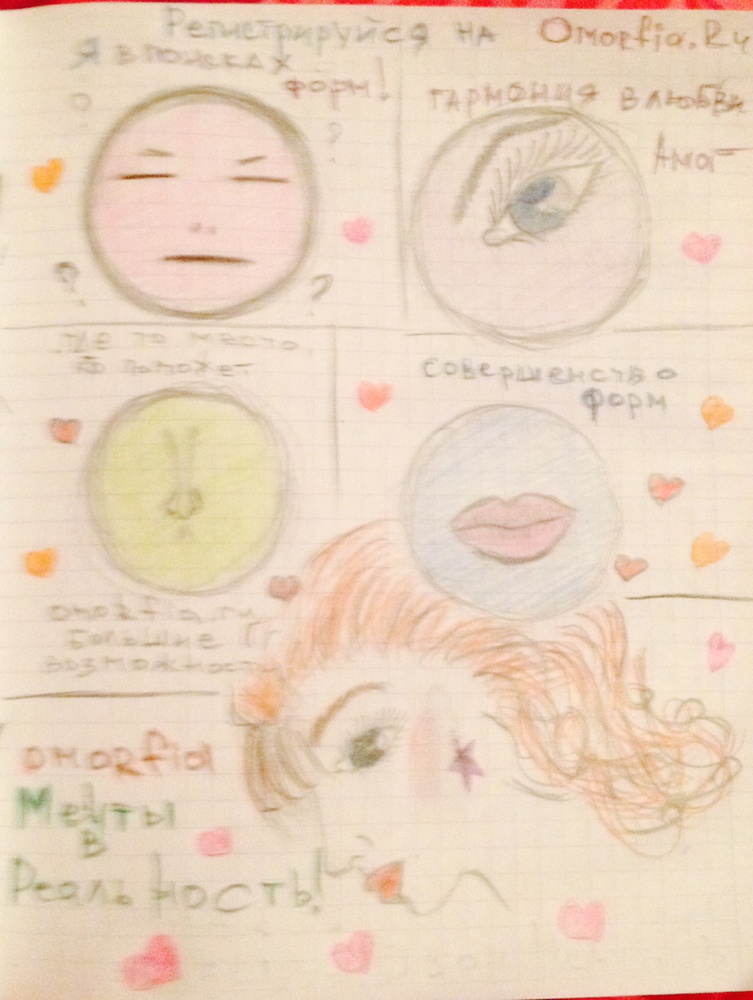 Регистрируйся на Omorfia.Ru
Я в поисках
форм!
?
?
?
?
гармония в любви
Где то место,
поможет
совершенство
форм
omorfia.ru
большие
возможности
omorfia
Мечты
в
Реальность!